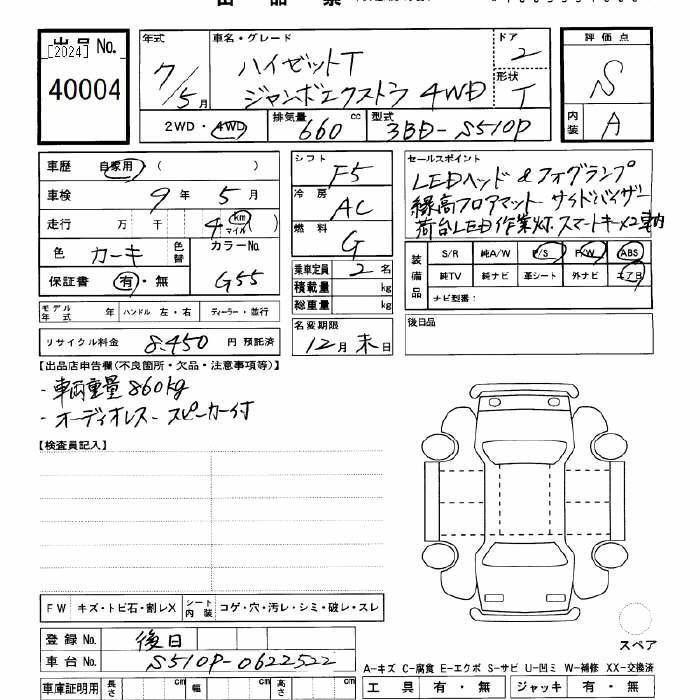 出品票
出品 No.
[2024]
40004
年式
7/5月
車名・グレード
ハイゼットT
ジャンボエクストラ 4WD
ドア
2
形状
T
評価点
S
内装
A
2WD・4WD
排気量
660 cc
型式
3BD-S510P
車歴 自家用 ( )
車検 9年 5月
走行 万 千 4 km マイル )
色 カーキ
色替
カラーNo.
G55
保証書 有・無
シフト
F5
冷房
AC
燃料
G
乗車定員 2名
積載量 kg
総重量 kg
名変期限
12月末日
セールスポイント
LEDヘッド&フォグランプ
縁高フロアマット サイドバイザー
荷台LED作業灯.スマートキー2
装備品
S/R 純A/W P/S P/W ABS
純TV 純ナビ 革シート 外ナビ エアB
ナビ型番:
後日品
モデル年式 年 ハンドル 左・右 ディーラー・並行
リサイクル料金 8.450 円 預託済
【出品店申告欄(不良箇所・欠品・注意事項等)】
・車両重量860kg
・オーディオレス-スピーカー付
【検査員記入】
FW キズ・トビ石・割レX シート内装 コゲ・穴・汚レ・シミ・破レ・スレ
登録 No. 後日
車台 No. S510P-0622522
車庫証明用 長さ cm 幅 cm 高さ cm
スペア
A-キズ C-腐食 E-エクボ S-サビ U-凹ミ W-補修 XX-交換済
工具 有・無 ジャッキ 有・無